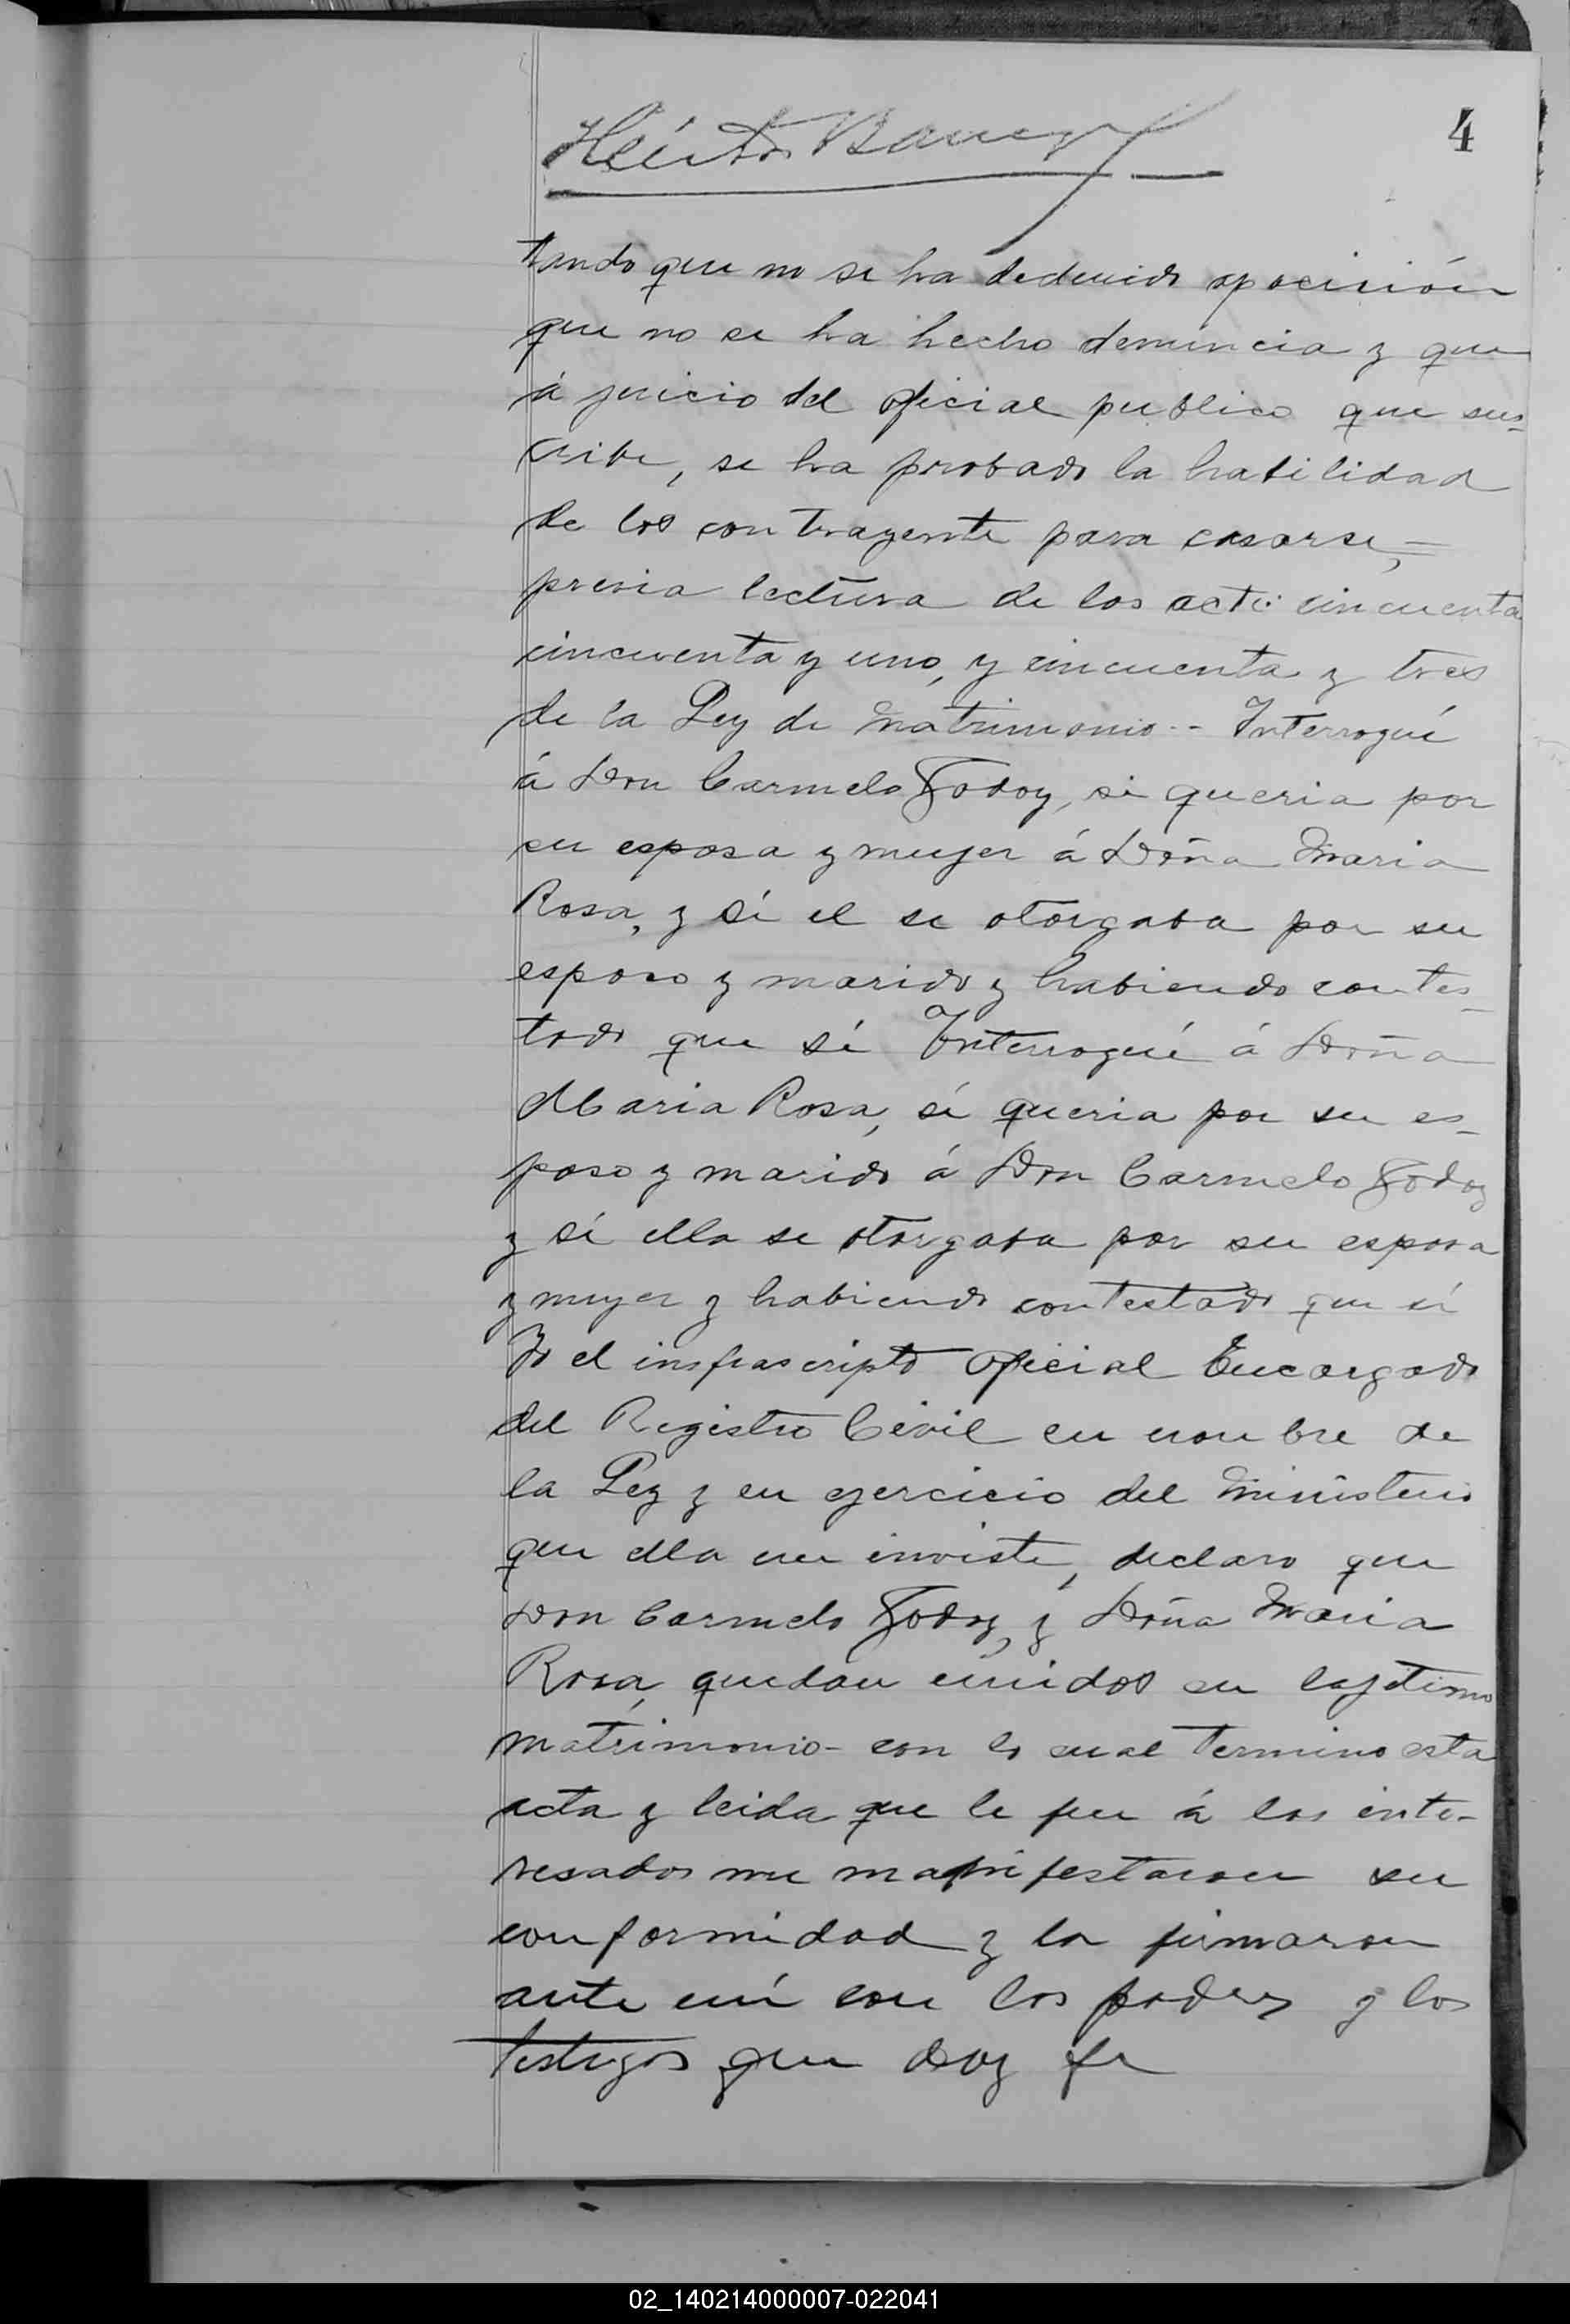 4
Héctor
tando que no se ha deducido oposición
que no se ha hecho denuncia y que
á juicio del oficial publico que sus-
cribe, se ha probado la habilidad
de los contrayente para casarse, =
previa lectura de los acto: cincuenta
cincuenta y uno, y cincuenta y tres
de la Ley de Matrimonio -- Interrogué
á Don Carmelo Godoy, si queria por
su esposa y mujer á Doña Maria
Rosa, y sí el se otorgaba por su
esposo y marido y habiendo contes-
tado que sí Interrogué á Doña
Maria Rosa, sí queria por su es-
poso y marido á Don Carmelo Godoy
y sí ella se otorgaba por su esposa
y mujer y habiendo contestado que sí
Yo el insfrascripto oficial Encargado
del Registro Civil en nombre de
la Ley y en ejercicio del Ministerio
que ella me inviste, declaro que
Don Carmelo Godoy, y Doña Maria
Rosa, quedan únidos en lejitimo
matrimonio - con lo cual termino esta
acta y leida que le fue á los inte-
resados me manifestaron su
conformidad y la firmaron
ante mí con los padres y los
testigos que doy fe
02_140214000007-022041